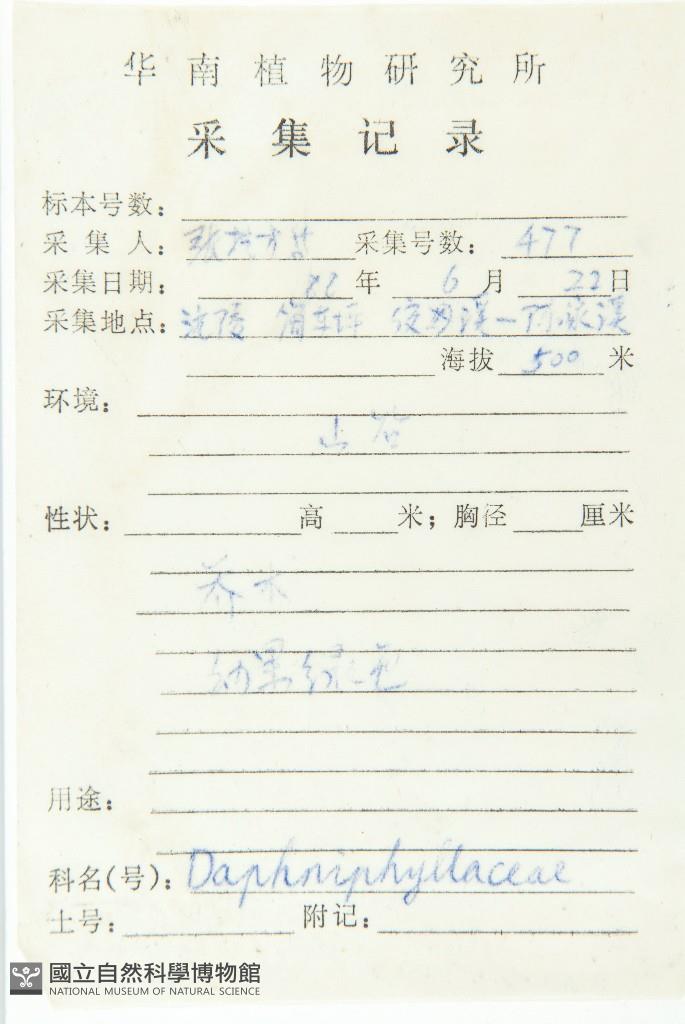 华南植物研究所
采集记录
标本号数:
采集人: 采集号数: 477
采集日期: 82 年 6 月 22 日
采集地点: 沅陵
海拔 500 米
环境:
山谷
性状: 高 米; 胸径 厘米
乔木
幼果绿色
用途:
科名(号): Daphniphyllaceae
土号: 附记:
國立自然科學博物館
NATIONAL MUSEUM OF NATURAL SCIENCE